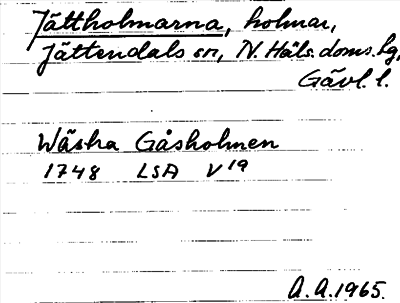 Jättholmarna, holmar,
Jättendals sn, N. Häls. doms. hg,
Gävl. l.
Wästra Gåsholmen
1748 LSA V19
A.A. 1965.